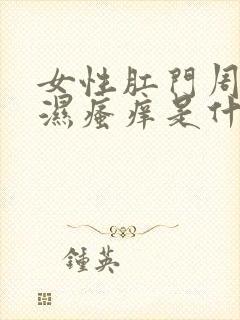 女性肛門周
濕瘙痒是什
鍾英